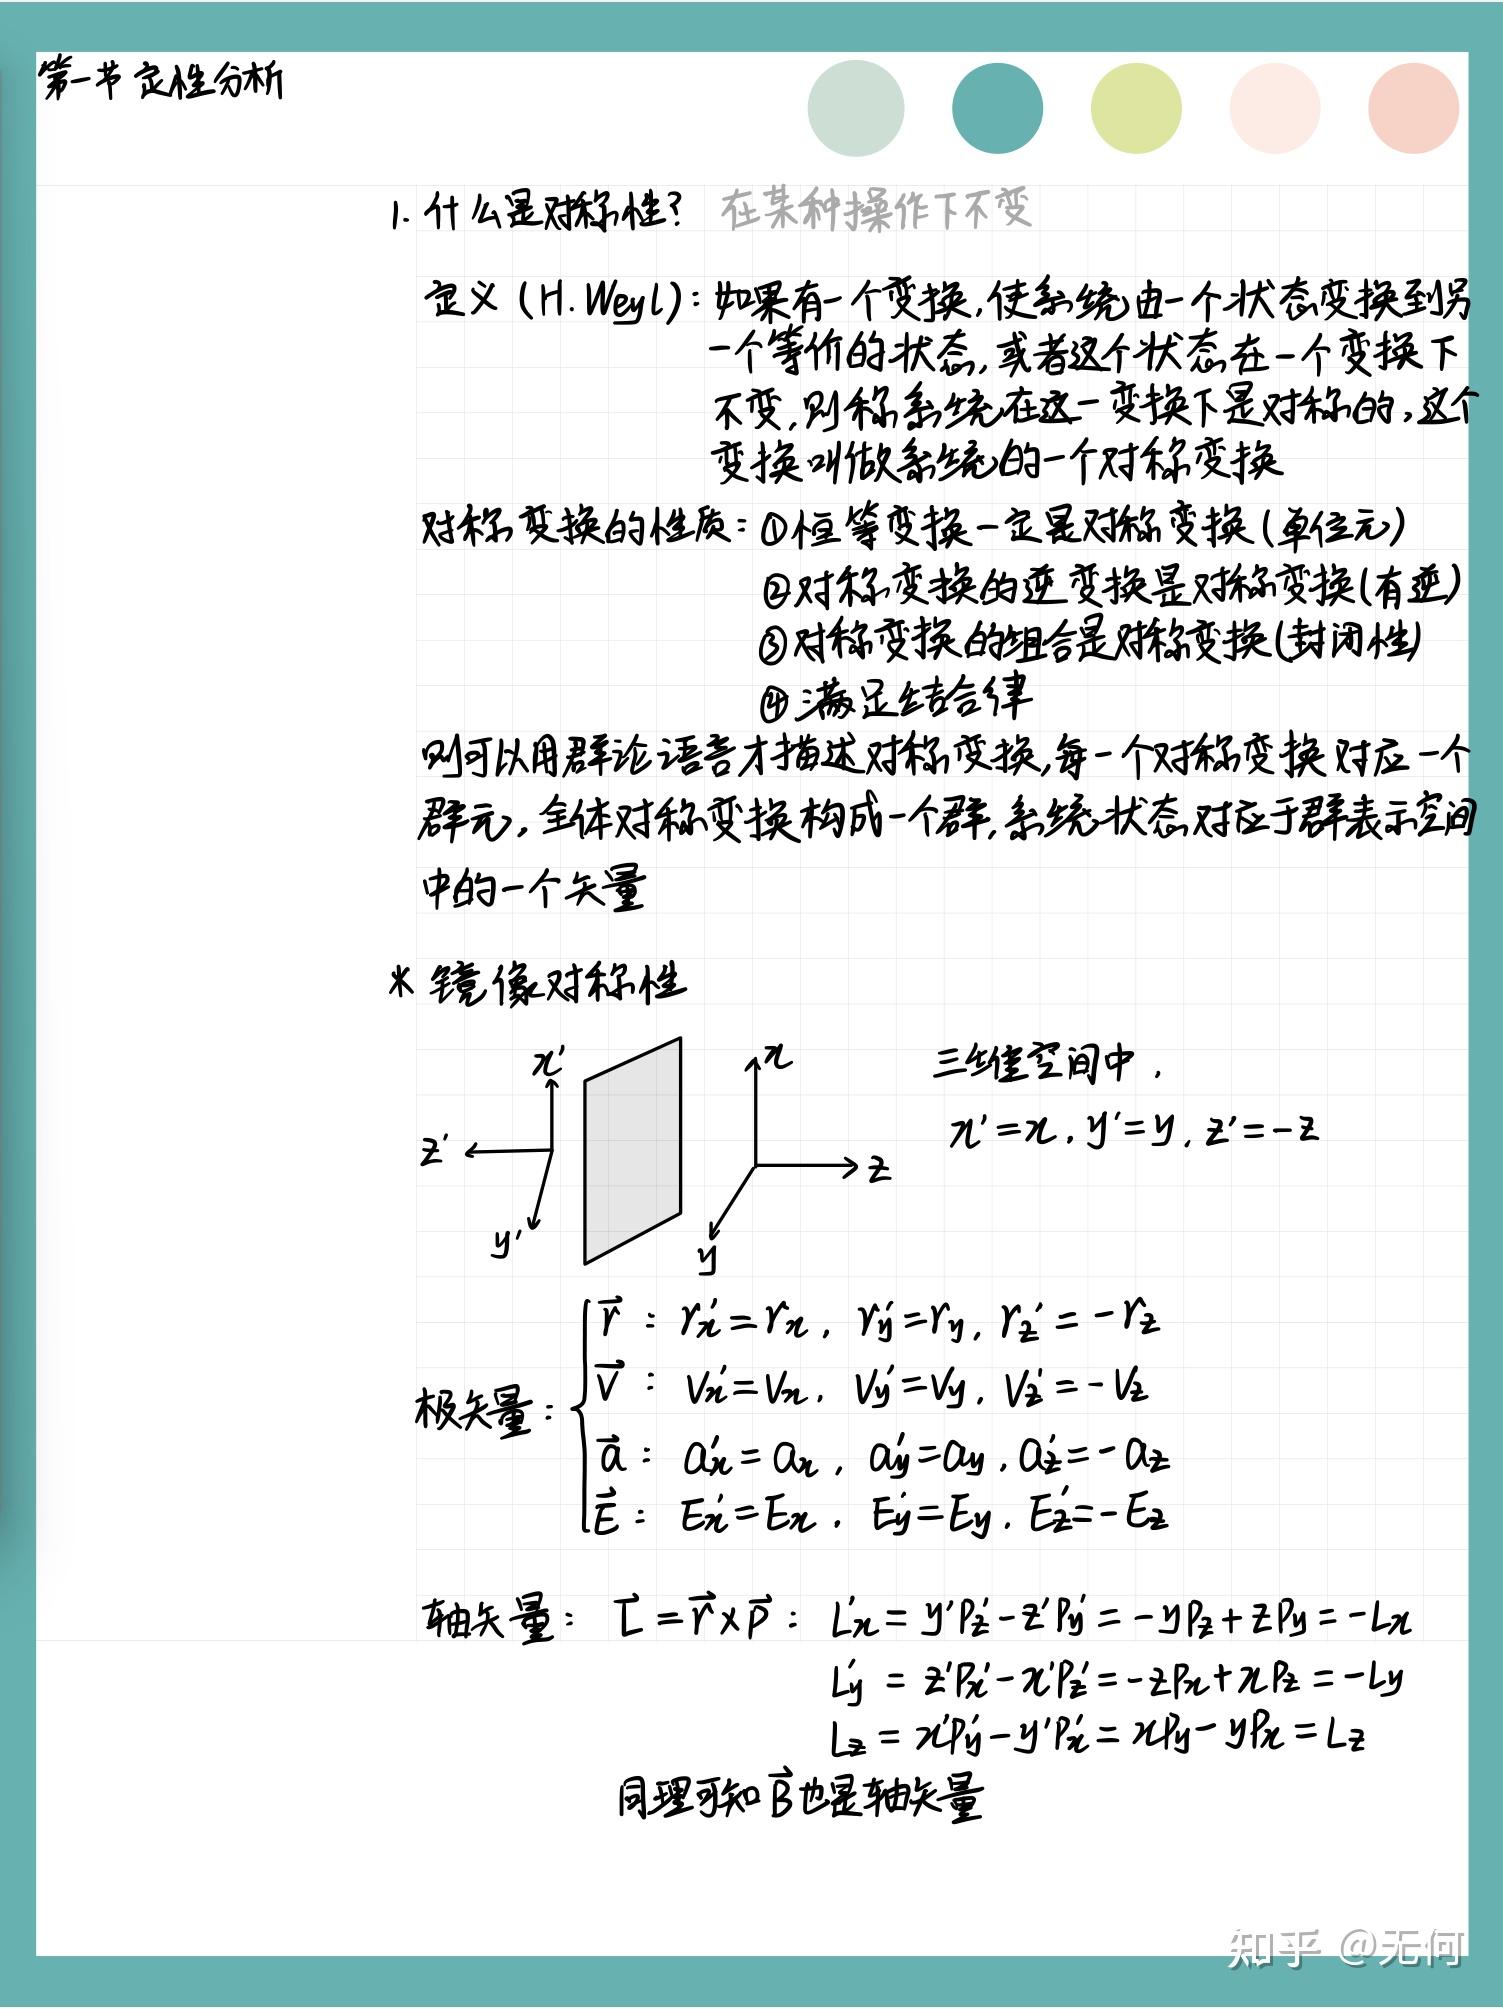 第一节 定性分析
1. 什么是对称性? 在某种操作下不变
定义 (H. Weyl): 如果有一个变换, 使系统由一个状态变换到另
一个等价的状态, 或者这个状态在一个变换下
不变, 则称系统在这一变换下是对称的, 这个
变换叫做系统的一个对称变换
对称变换的性质: ①恒等变换一定是对称变换(单位元)
②对称变换的逆变换是对称变换(有逆)
③对称变换的组合是对称变换(封闭性)
④满足结合律
则可以用群论语言才描述对称变换, 每一个对称变换对应一个
群元, 全体对称变换构成一个群, 系统状态对应于群表示空间
中的一个矢量
* 镜像对称性
x' x
z' z
y' y
三维空间中,
x'=x, y'=y, z'=-z
极矢量:
r⃗ : rx'=rx, ry'=ry, rz'=-rz
v⃗ : Vx'=Vx, Vy'=Vy, Vz'=-Vz
a⃗ : ax'=ax, ay'=ay, az'=-az
E⃗ : Ex'=Ex, Ey'=Ey, Ez'=-Ez
轴矢量: L⃗=r⃗×p⃗ : Lx'=y'Pz'-z'Py'=-yPz+zPy=-Lx
Ly'=z'Px'-x'Pz'=-zPx+xPz=-Ly
Lz=x'Py'-y'Px'=xPy-yPx=Lz
同理可知B⃗也是轴矢量
知乎 @无何